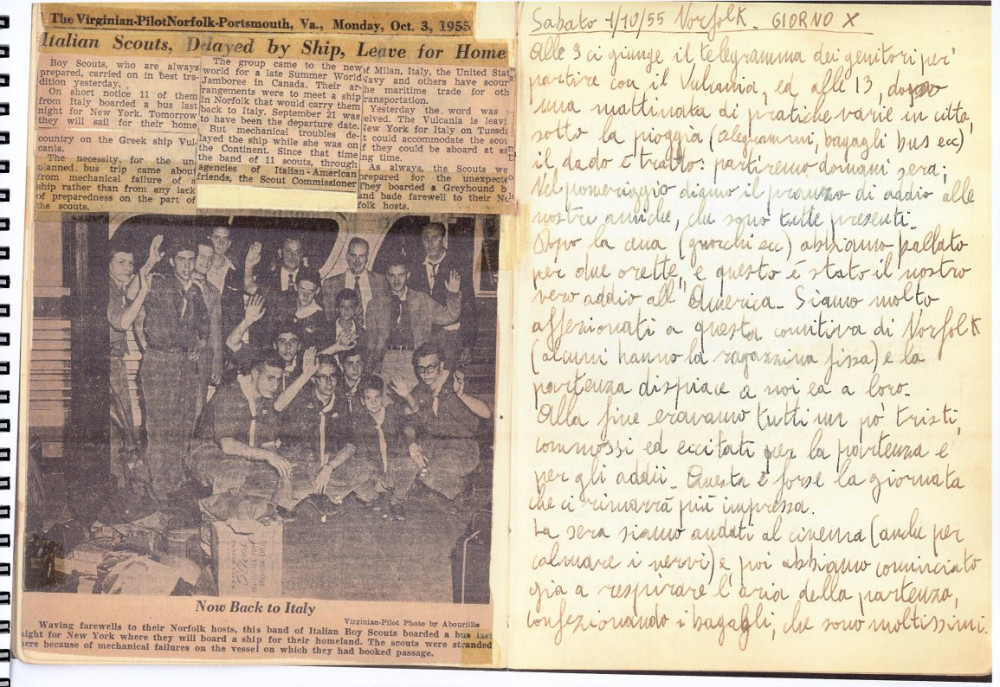 The Virginian-Pilot Norfolk-Portsmouth, Va., Monday, Oct. 3, 1955
Italian Scouts, Delayed by Ship, Leave for Home
Boy Scouts, who are always
prepared, carried on in best tra-
dition yesterday.
On short notice 11 of them
from Italy boarded a bus last
night for New York. Tomorrow
they will sail for their home
country on the Greek ship Vul-
cania.
The necessity for the un-
planned bus trip came about
from mechanical failure of a
ship rather than from any lack
of preparedness on the part of
the scouts.
The group came to the new
world for a late Summer World
Jamboree in Canada. Their ar-
rangements were to meet a ship
in Norfolk that would carry them
back to Italy. September 21 was
to have been the departure date.
But mechanical troubles de-
layed the ship while she was on
the Continent. Since that time
the band of 11 scouts, through
agencies of Italian-American
friends, the Scout Commissioner
of Milan, Italy, the United Stat
Navy and others have scour
he maritime trade for oth
ransportation.
Yesterday the word was
eived. The Vulcania is leavi
New York for Italy on Tuesd
t could accommodate the scou
f they could be aboard at sa
ng time.
As always, the Scouts we
repared for the unexpecte
They boarded a Greyhound b
and bade farewell to their No
folk hosts.
Now Back to Italy
Virginian-Pilot Photo by Abourjilie
Waving farewells to their Norfolk hosts, this band of Italian Boy Scouts boarded a bus last
night for New York where they will board a ship for their homeland. The scouts were stranded
here because of mechanical failures on the vessel on which they had booked passage.
Sabato 1/10/55 Norfolk. GIORNO X
Alle 9 ci giunge il telegramma dei genitori per
partire con il Vulcania, ed alle 13, dopo
una mattinata di pratiche varie in città,
sotto la pioggia (telegrammi, bagagli bus ecc)
il dado è tratto: partiremo domani sera;
Nel pomeriggio diamo il pranzo di addio alle
nostre amiche, che sono tutte presenti.
Dopo la cena (gnocchi ecc) abbiamo parlato
per due orette, e questo è stato il nostro
vero addio all'America. Siamo molto
affezionati a questa comitiva di Norfolk
(alcuni hanno la ragazzina fissa) e la
partenza dispiace a noi ed a loro.
Alla fine eravamo tutti un pò tristi,
commossi ed eccitati per la partenza e
per gli addii. Questa è forse la giornata
che ci rimarrà più impressa.
La sera siamo andati al cinema (anche per
calmare i nervi) e poi abbiamo cominciato
già a respirare l'aria della partenza,
confezionando i bagagli, che sono moltissimi.